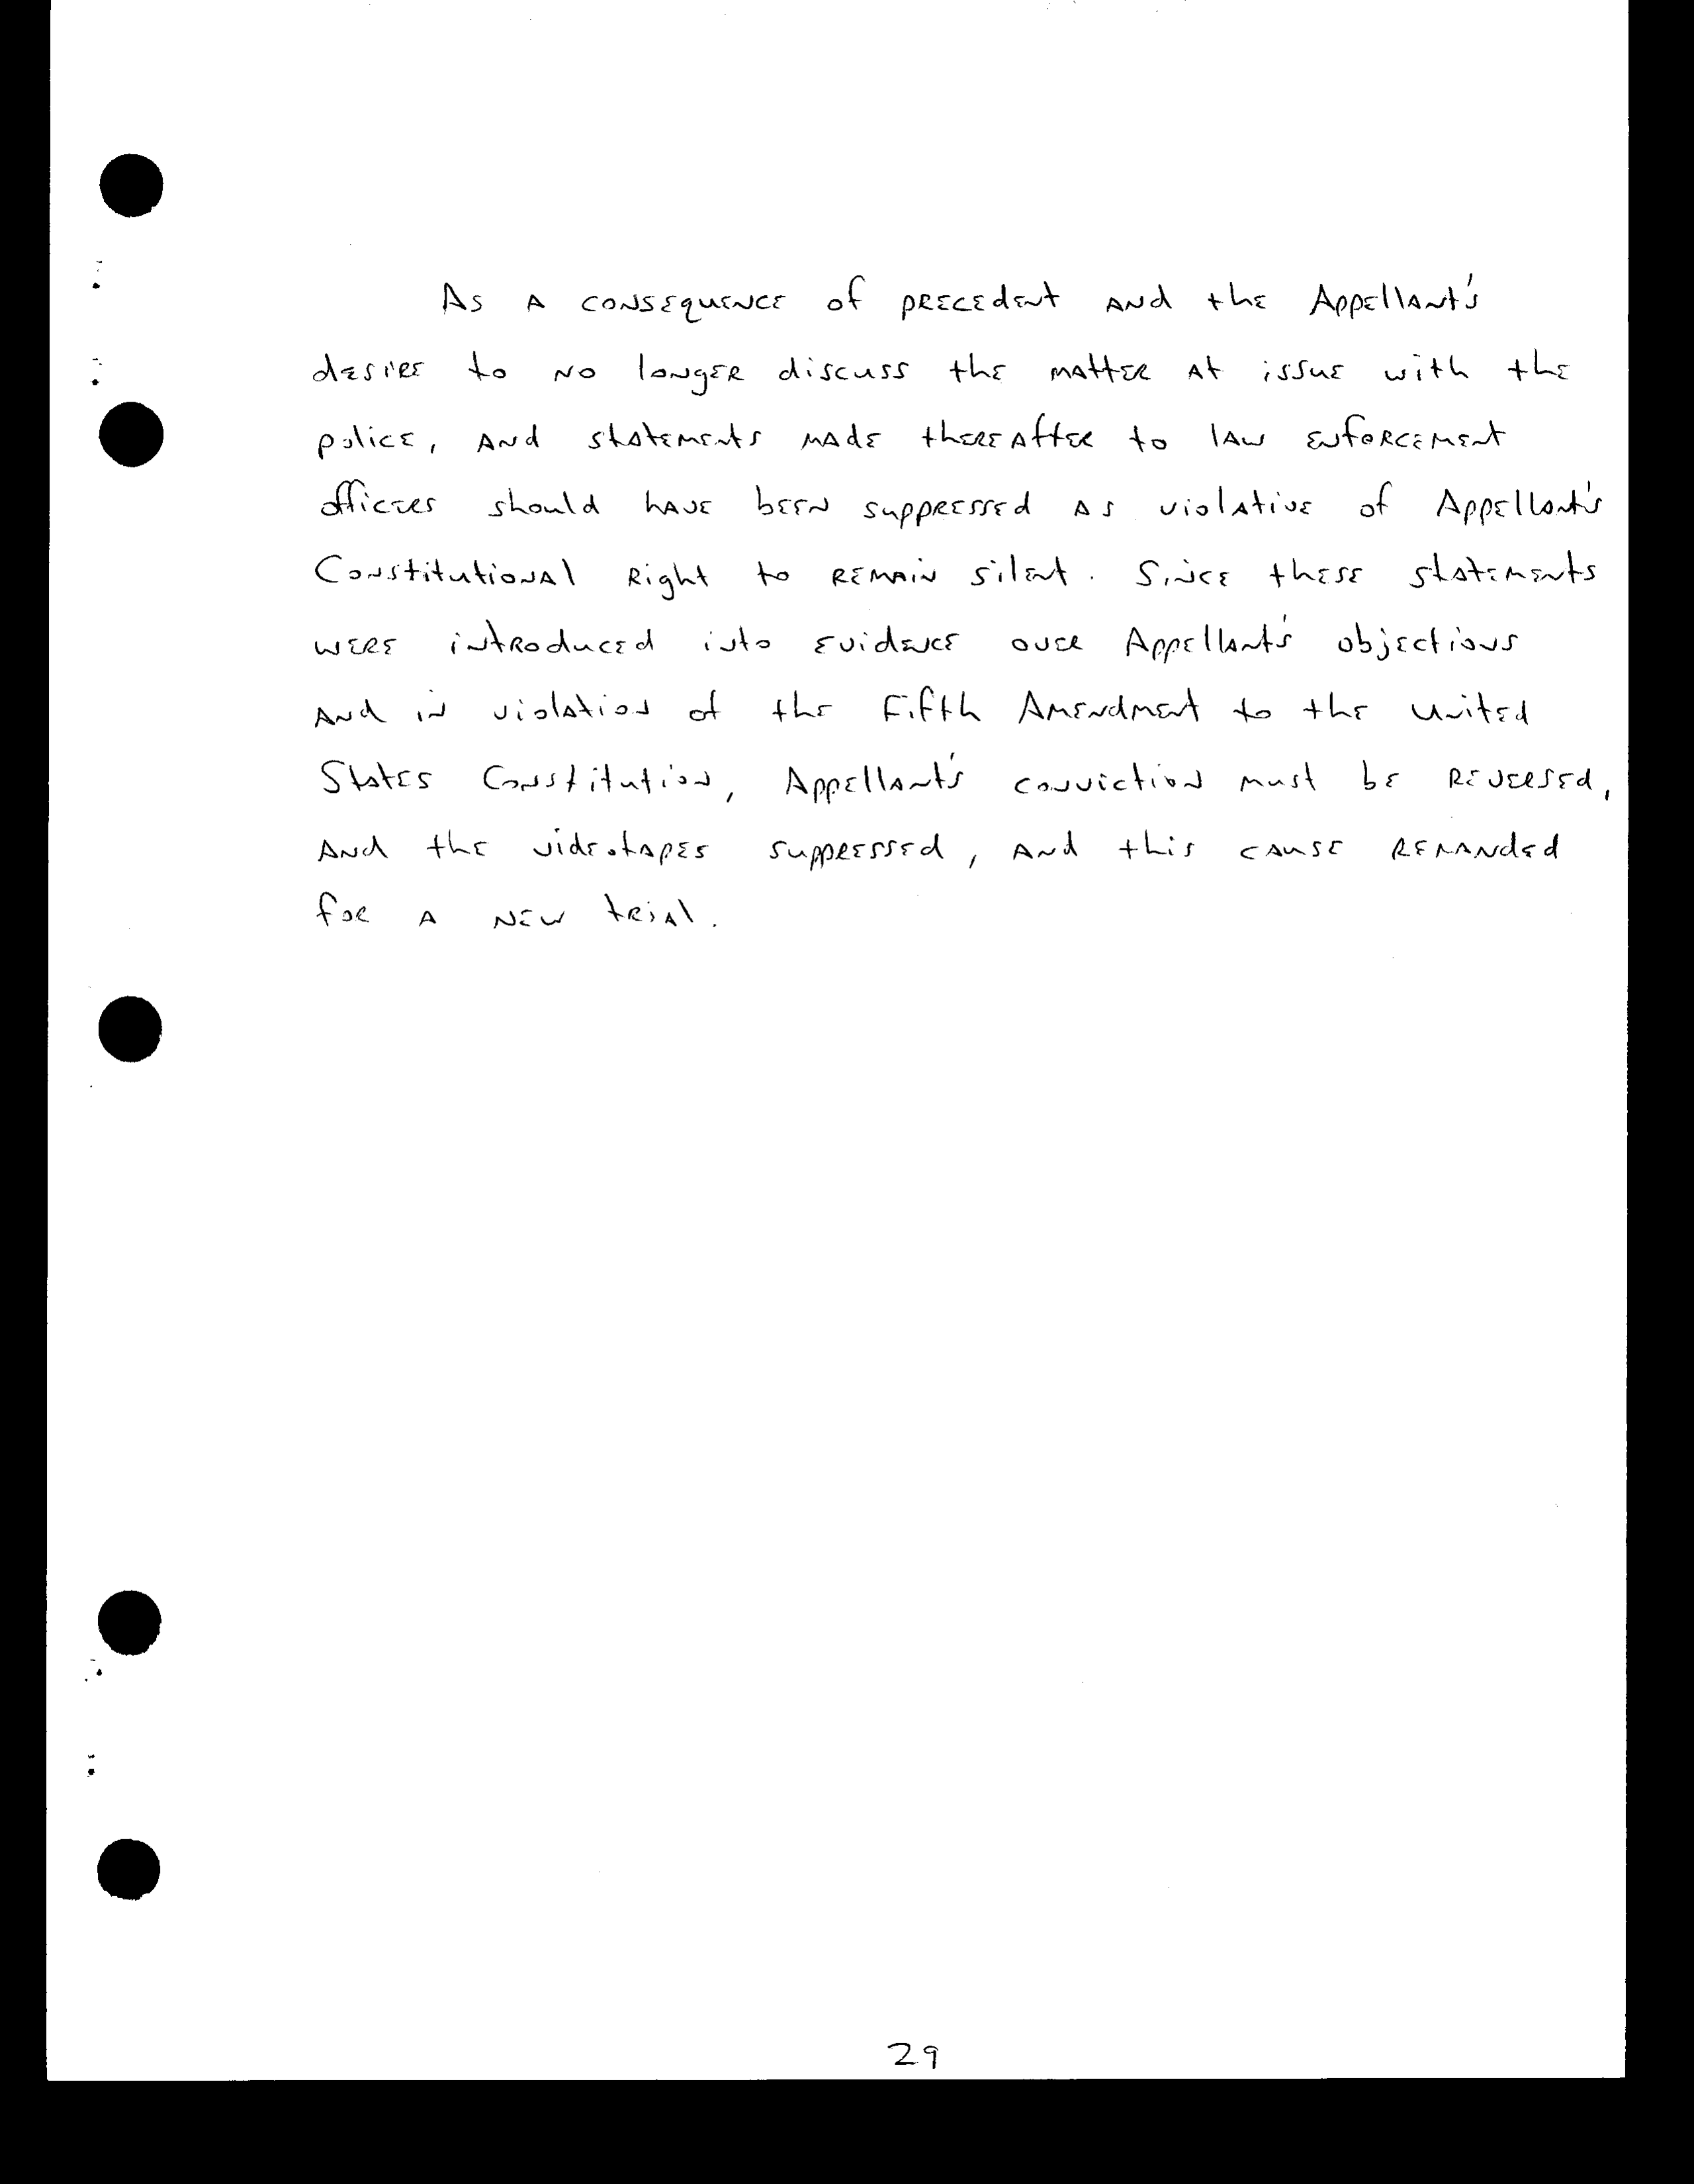 As a consequence of precedent and the Appellant's
desire to no longer discuss the matter at issue with the
police, and statements made thereafter to law enforcement
officers should have been suppressed as violative of Appellant's
Constitutional Right to remain silent. Since these statements
were introduced into evidence over Appellant's objections
and in violation of the Fifth Amendment to the United
States Constitution, Appellant's conviction must be reversed,
and the videotapes suppressed, and this cause remanded
for a new trial.
29